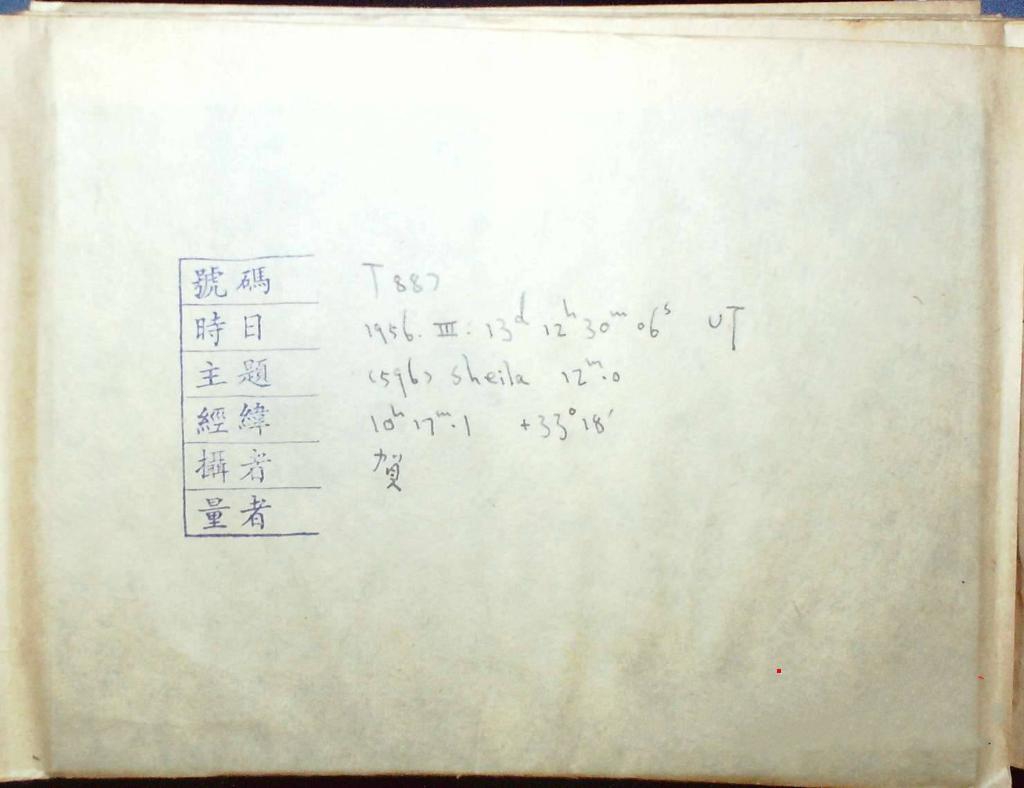 號碼 T887
時日 1956. III. 13ᵈ 12ʰ 30ᵐ 06ˢ UT
主題 (596) Sheila 12ᵐ.0
經緯 10ʰ 17ᵐ.1 +33°18′
攝者 賀
量者